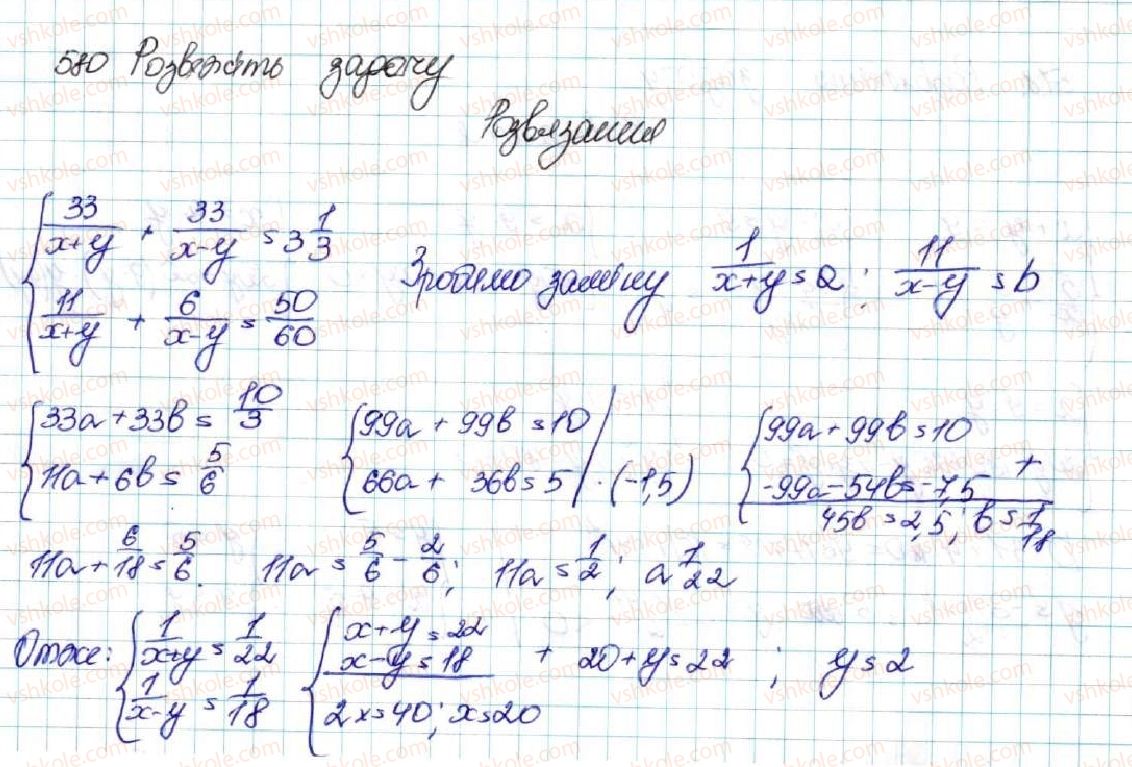 580 Розвяжіть задачу
Розвязання
{ 33/(x+y) + 33/(x-y) = 3 1/3
{ 11/(x+y) + 6/(x-y) = 50/60
Зробимо заміну 1/(x+y) = a; 11/(x-y) = b
{ 33a + 33b = 10/3
{ 11a + 6b = 5/6
{ 99a + 99b = 10
{ 66a + 36b = 5 | · (-1,5)
{ 99a + 99b = 10
{ -99a - 54b = -7,5 +
45b = 2,5; b = 1/18
11a + 6/18 = 5/6. 11a = 5/6 - 2/6; 11a = 1/2; a 1/22
Отже: { 1/(x+y) = 1/22
{ 1/(x-y) = 1/18
{ x+y = 22
x-y = 18 +
2x = 40; x = 20
20 + y = 22; y = 2
vshkole.com